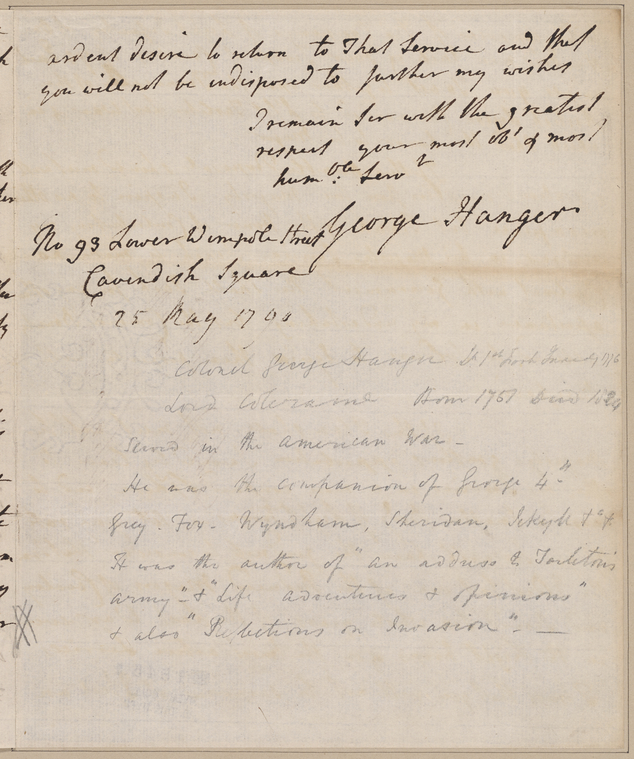 ardent desire to return to That Service and that
you will not be indisposed to further my wishes
I remain Ser with the greatest
respect your most obt & most
humble Servt
George Hanger
No 93 Lower Wimpole Street
Cavendish Square
25 May
Colonel George Hanger
Lord Coleraine Born 1751 Died 1824
Served in the American War -
He was the companion of George 4th
Grey. Fox - Wyndham, Sheridan, Jekyll
It was the author of "an address to Tarleton's
army" - & "Life adventures & opinions"
& also "Reflections on Invasion" - —